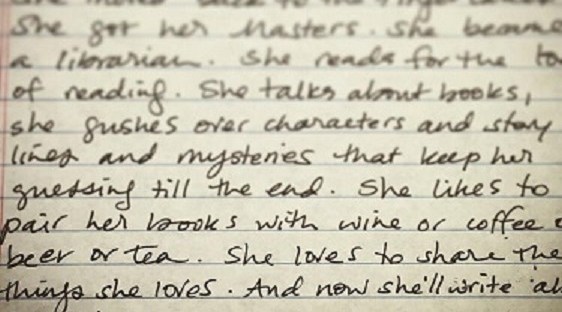 She got her Masters. She became
a librarian. She reads for the
of reading. She talks about books,
she gushes over characters and story
lines and mysteries that keep her
guessing till the end. She likes to
pair her books with wine or coffee
beer or tea. She loves to share the
things she loves. And now she'll write